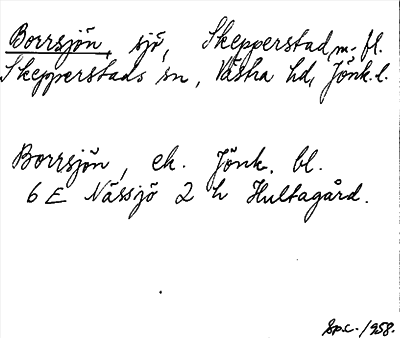 Borrsjön, sjö, Skepperstad m. fl.
Skepperstads sn, Västra hd, Jönk. l.
Borrsjön, ek. Jönk. bl.
6 E Nässjö 2 h Hultagård.
Sp.c. 1958.